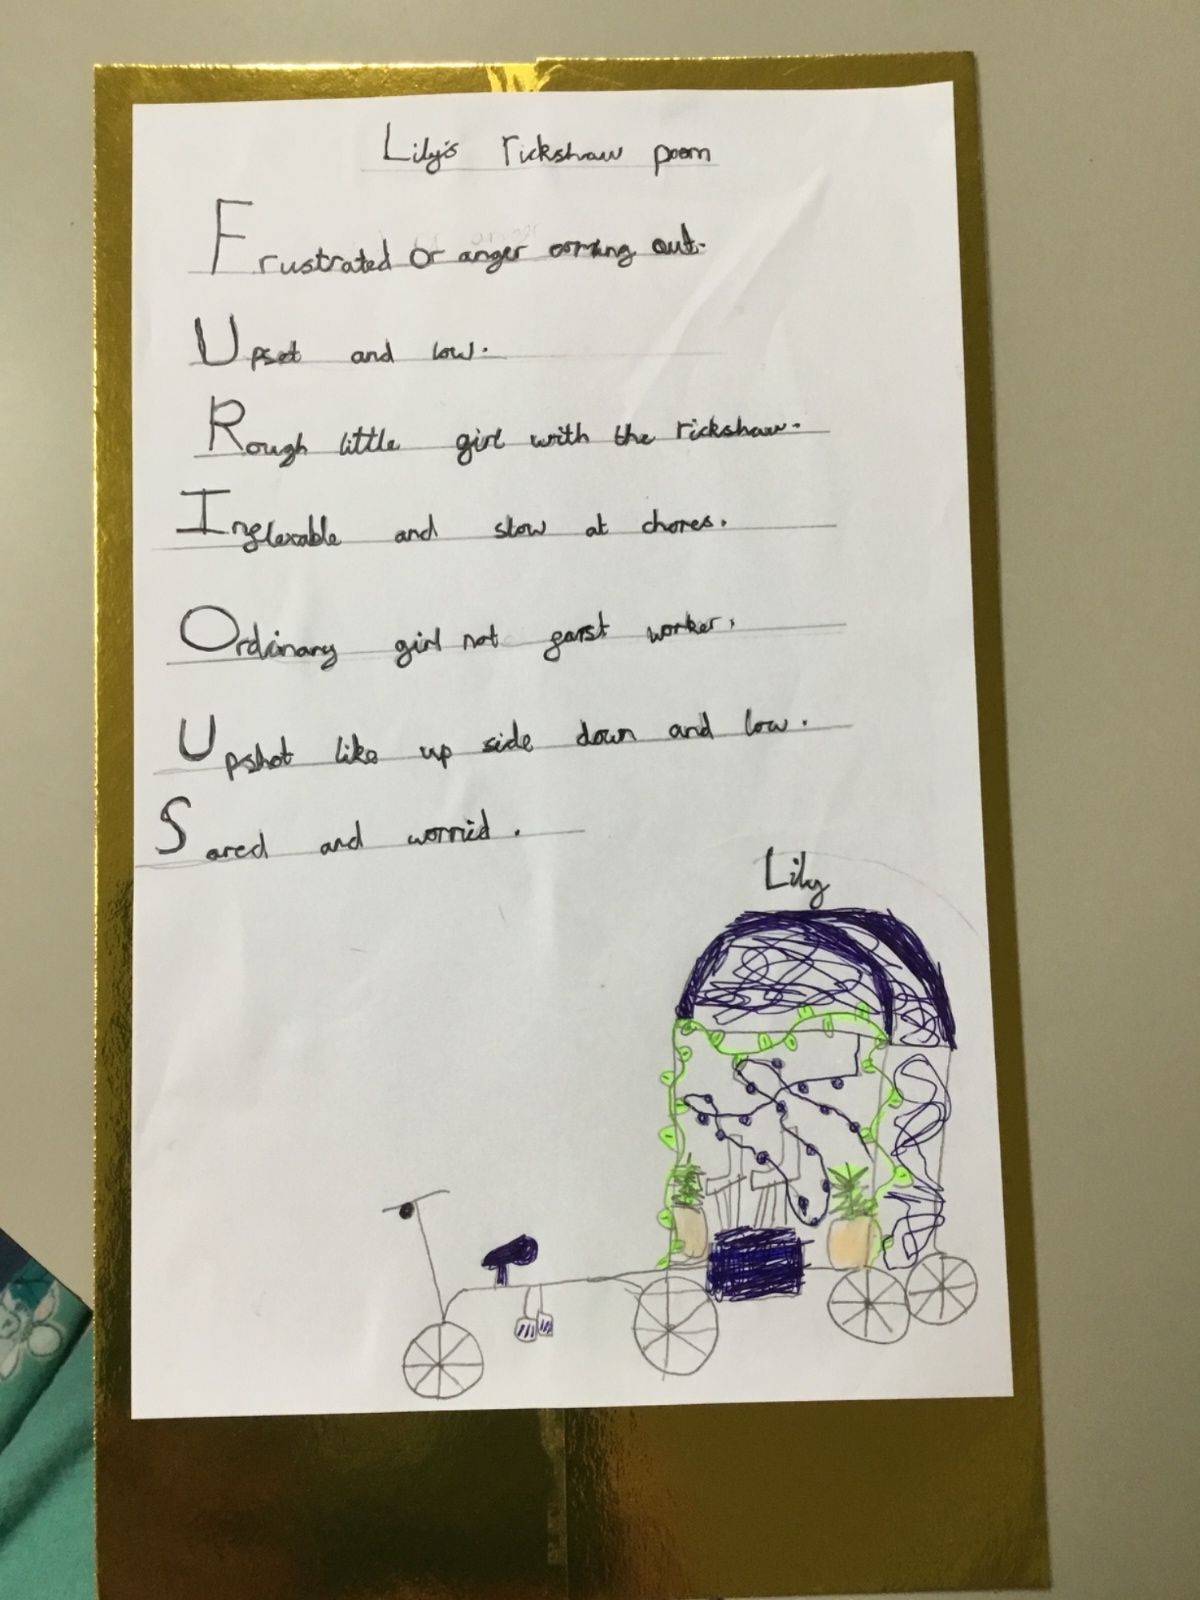 Lily's rickshaw poem
Frustrated or anger coming out.
Upset and low.
Rough little girl with the rickshaw.
Inflexable and slow at chores.
Ordinary girl not farst worker.
Upshot like up side down and low.
Sared and worried.
Lily